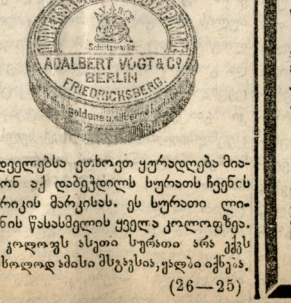 AV & CP
Schutzmarke
ADALBERT VOGT & Cº
BERLIN
FRIEDRICHSBERG.
დველებსა ვთხოვთ ყურადღება მია-
ონ აქ დაბეჭდილს სურათს ჩვენის
რიკის მარკისას. ეს სურათი ლი-
ნის წასასმელის ყველა კოლოფზეა.
კოლოფს ასეთი სურათი არა ექვს
ხოლოდ ამისი მსგავსია, ყალბი იქნება.
(26—25)